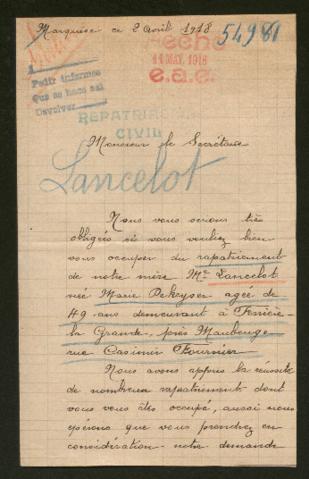 Marquise ce 2 Avril 1918
54981
fecho
11 MAY. 1918
e.a.e.
Pedir informes
Que se hace así
Devolver
REPATRIACION
CIVIL
Monsieur le Secrétaire
Lancelot
Nous vous serions très
obligés si vous vouliez bien
vous occuper du rapatriement
de notre mère Me Lancelot
née Marie Dekeyser agée de
49 ans demeurant à Ferrière
la Grande, près Maubeuge
rue Casimir Fournier
Nous avons appris la réussite
de nombreux rapatriement dont
vous vous êtes occupé, aussi nous
espérons que vous prendrez en
considération notre demande